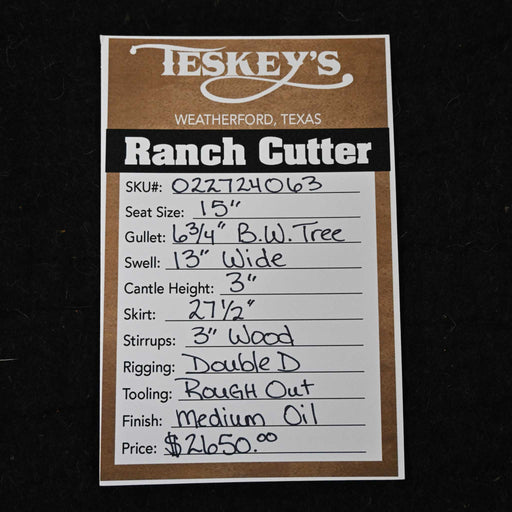 TESKEY'S
WEATHERFORD, TEXAS
Ranch Cutter
SKU#: 022724063
Seat Size: 15"
Gullet: 6 3/4" B.W. Tree
Swell: 13" Wide
Cantle Height: 3"
Skirt: 27 1/2"
Stirrups: 3" Wood
Rigging: Double D
Tooling: ROUGH Out
Finish: Medium Oil
Price: $2650.00